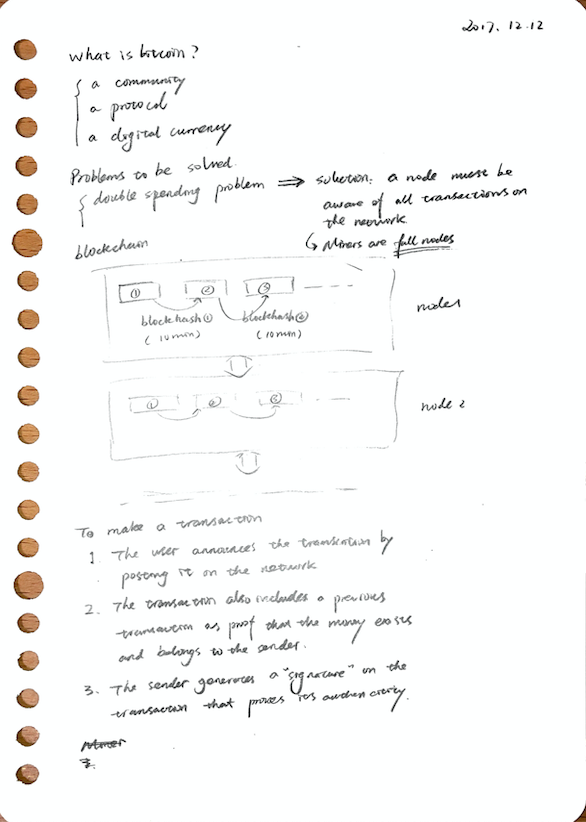 2017. 12. 12
What is bitcoin?
a community
a protocol
a digital currency
Problems to be solved.
double spending problem ⇒ solution: a node must be
aware of all transactions on
the network
↳ Miners are full nodes
blockchain
① ② ③
node 1
blockhash① blockhash②
(10min) (10min)
① ② ③
node 2
To make a transaction
1. The user announces the transaction by
posting it on the network
2. The transaction also includes a previous
transaction as proof that the money exists
and belongs to the sender.
3. The sender generates a "signature" on the
transaction that proves its authenticity.
Miner
3.